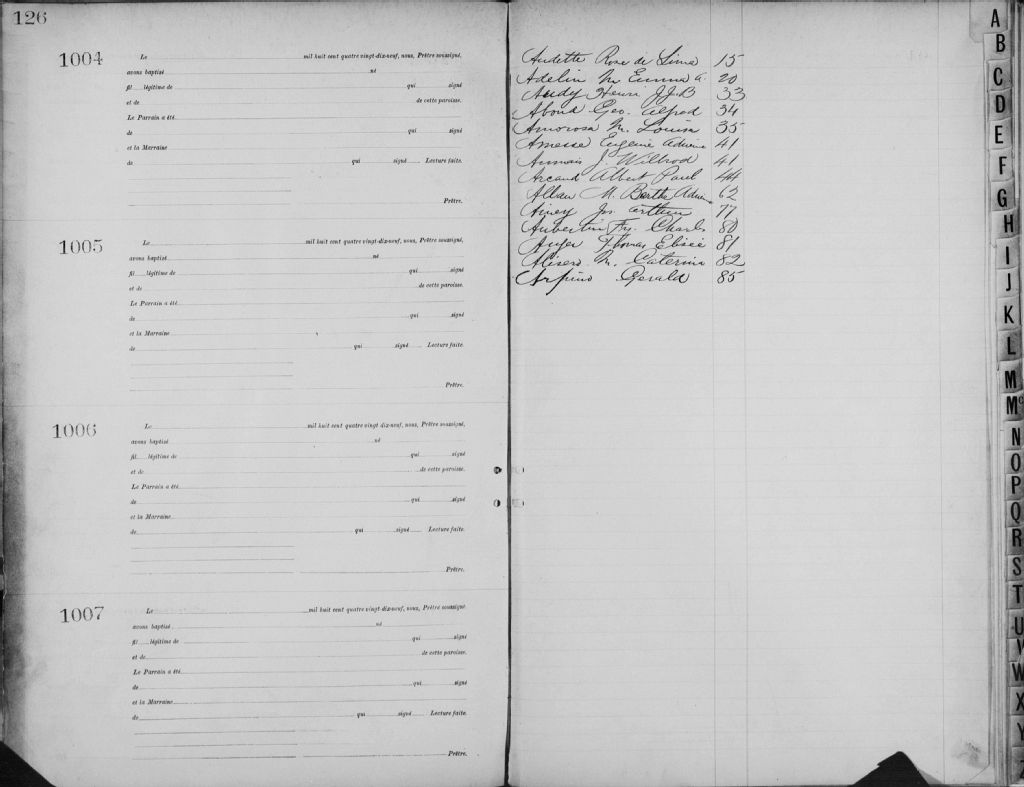 126
1004
Le mil huit cent quatre vingt-dix-neuf, nous, Prêtre soussigné,
avons baptisé né
fil légitime de qui signé
et de de cette paroisse.
Le Parrain a été
de qui signé
et la Marraine
de qui signé Lecture faite.
Prêtre.
1005
Le mil huit cent quatre vingt-dix-neuf, nous, Prêtre soussigné,
avons baptisé né
fil légitime de qui signé
et de de cette paroisse.
Le Parrain a été
de qui signé
et la Marraine
de qui signé Lecture faite.
Prêtre.
1006
Le mil huit cent quatre vingt-dix-neuf, nous, Prêtre soussigné,
avons baptisé né
fil légitime de qui signé
et de de cette paroisse.
Le Parrain a été
de qui signé
et la Marraine
de qui signé Lecture faite.
Prêtre.
1007
Le mil huit cent quatre vingt-dix-neuf, nous, Prêtre soussigné,
avons baptisé né
fil légitime de qui signé
et de de cette paroisse.
Le Parrain a été
de qui signé
et la Marraine
de qui signé Lecture faite.
Prêtre.
Audette Rose de Lima 15
Adelin M. Emma A. 20
Audy Henri J.J.B 33
Abond Geo. Alfred 34
Amorosa M. Louisa 35
Amesse Eugenie 41
J. Wilbrod 41
Arcand Albert Paul 44
Allan M. Bertha 62
Jos. Arthur 77
Aubertin Frs. Charles 80
Auger Thomas 81
Alisero M. Caterina 82
Arpino Gerald 85
A
B
C
D
E
F
G
H
I
J
K
L
M
Mc
N
O
P
Q
R
S
T
U
V
W
X
Y
Z